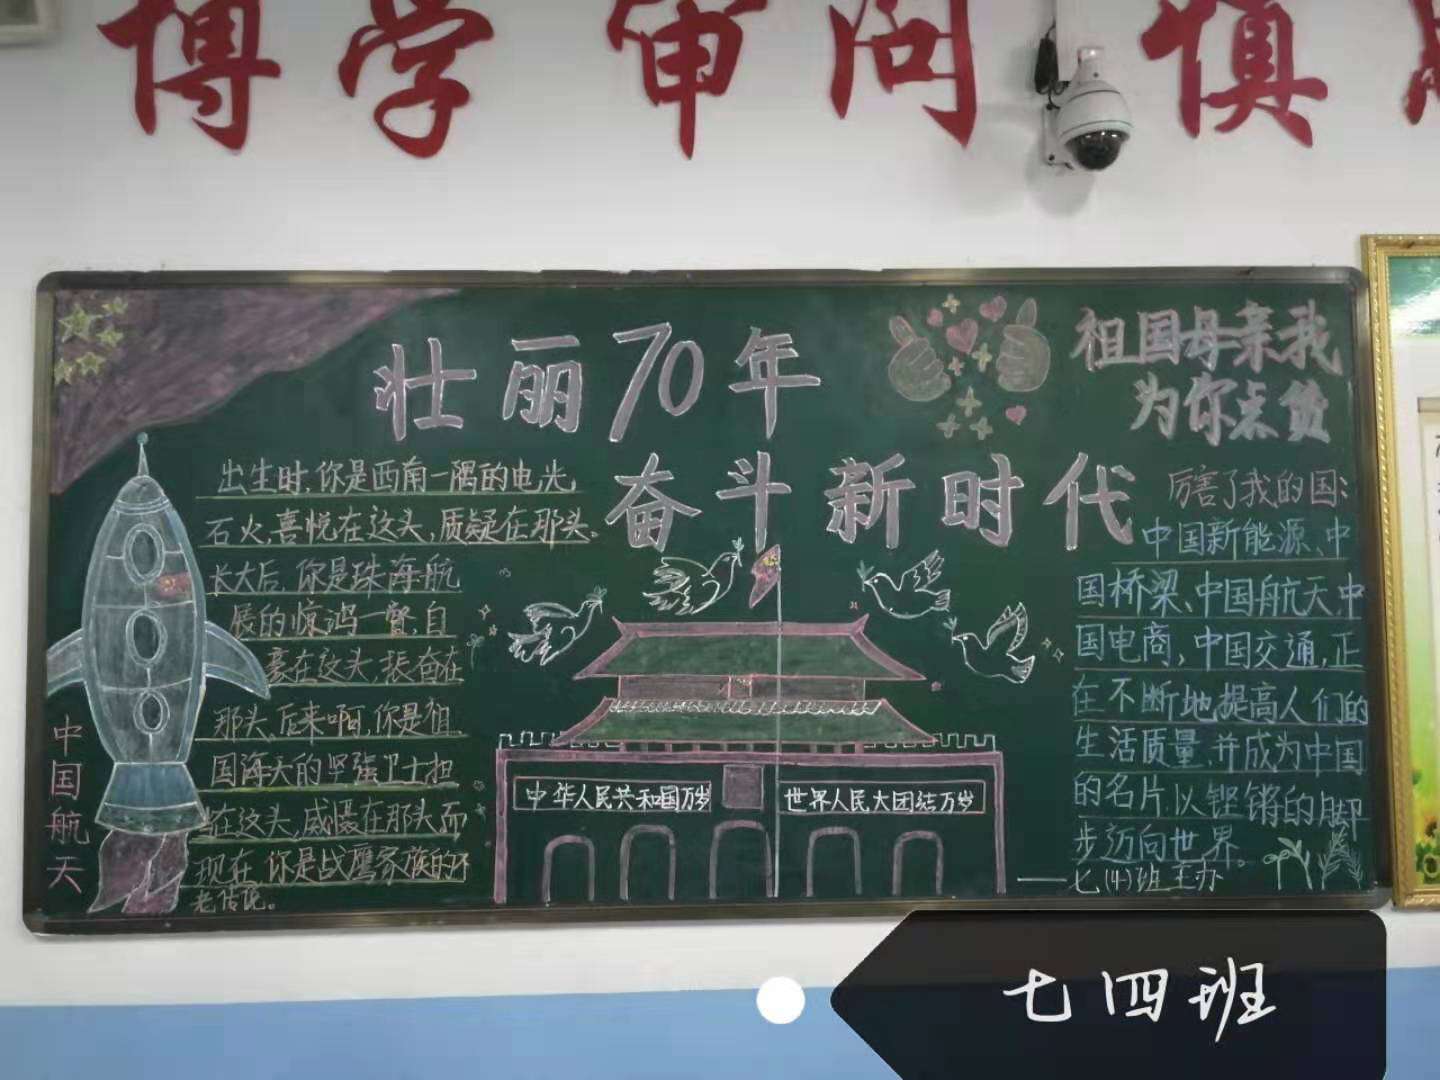 博学 审问 慎
壮丽70年
奋斗新时代
祖国母亲我
为你点赞
出生时,你是西南一隅的电光
石火,喜悦在这头,质疑在那头。
长大后,你是珠海航
展的惊鸿一瞥,自
豪在这头,振奋在
那头,后来啊,你是祖
国海天的坚强卫士担
在这头,威慑在那头而
现在,你是战鹰家族的不
老传说。
中国航天
中华人民共和国万岁
世界人民大团结万岁
厉害了我的国:
中国新能源、中
国桥梁、中国航天,中
国电商,中国交通,正
在不断地提高人们的
生活质量,并成为中国
的名片,以铿锵的脚
步迈向世界。
——七(4)班主办
七四班